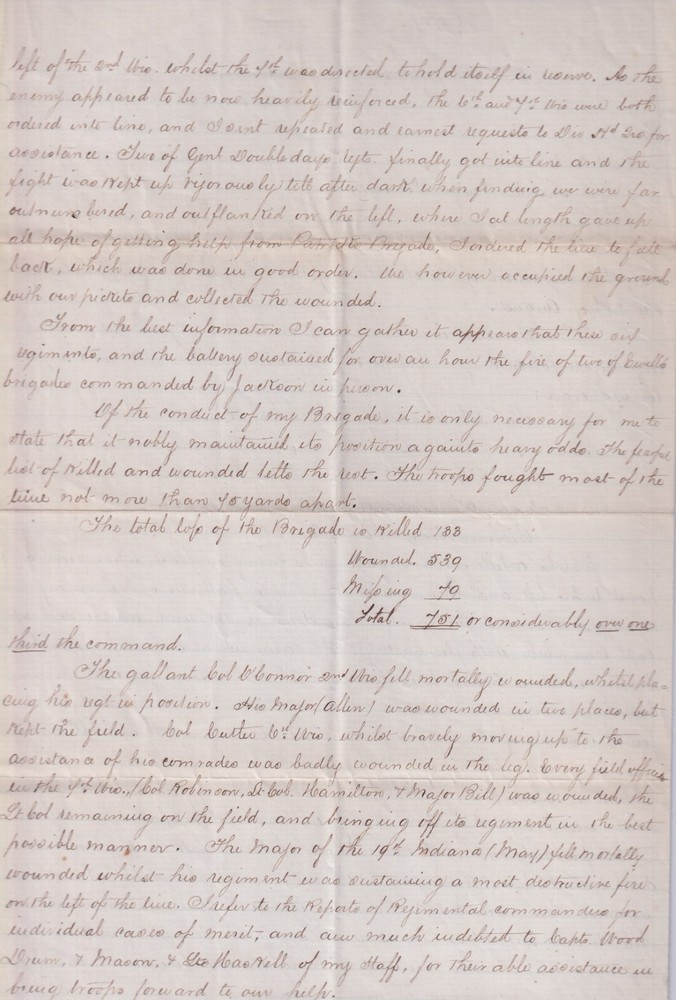 left of the 2nd Wis. whilst the 7th was directed to hold itself in reserve. As the
enemy appeared to be now heavily reinforced, the 6th and 7th Wis were both
ordered into line, and I sent repeated and earnest requests to Div Hd Qrs for
assistance. Two of Genl Doubledays regts. finally got into line and the
fight was kept up vigorously till after dark. when finding we were far
outnumbered, and outflanked on the left, where I at length gave up
all hope of getting help from Patricks Brigade, I ordered the line to fall
back, which was done in good order. We however occupied the ground
with our pickets and collected the wounded.
From the best information I can gather it appears that these six
regiments, and the battery sustained for over an hour the fire of two of Ewells
brigades commanded by Jackson in person.
Of the conduct of my Brigade, it is only necessary for me to
state that it nobly maintained its position againts heavy odds. The fearful
list of killed and wounded tells the rest. The troops fought most of the
time not more than 75 yards apart.
The total loss of the Brigade is Killed 133
Wounded. 539
Missing 79
Total. 751 or considerably over one
third the command.
The gallant Col O'Connor 2nd Wis fell mortally wounded, whilst pla=
cing his rgt in position. His Major (Allen) was wounded in two places, but
kept the field. Col Cutler 6th Wis, whilst bravely moving up to the
assistance of his comrades was badly wounded in the leg. Every field officer
in the 7th Wis., (Col Robinson, Lt Col. Hamilton, & Major Bill) was wounded, the
Lt Col remaining on the field, and bringing off its regiment in the best
possible manner. The Major of the 19th Indiana (May) fell mortally
wounded whilst his regiment was sustaining a most destructive fire
on the left of the line. I refer to the Reports of Regimental commanders for
individual cases of merit, and am much indebted to Capts. Wood
Drum, & Mason, & Lts Haskell of my Staff, for their able assistance in
being troops forward to our help.